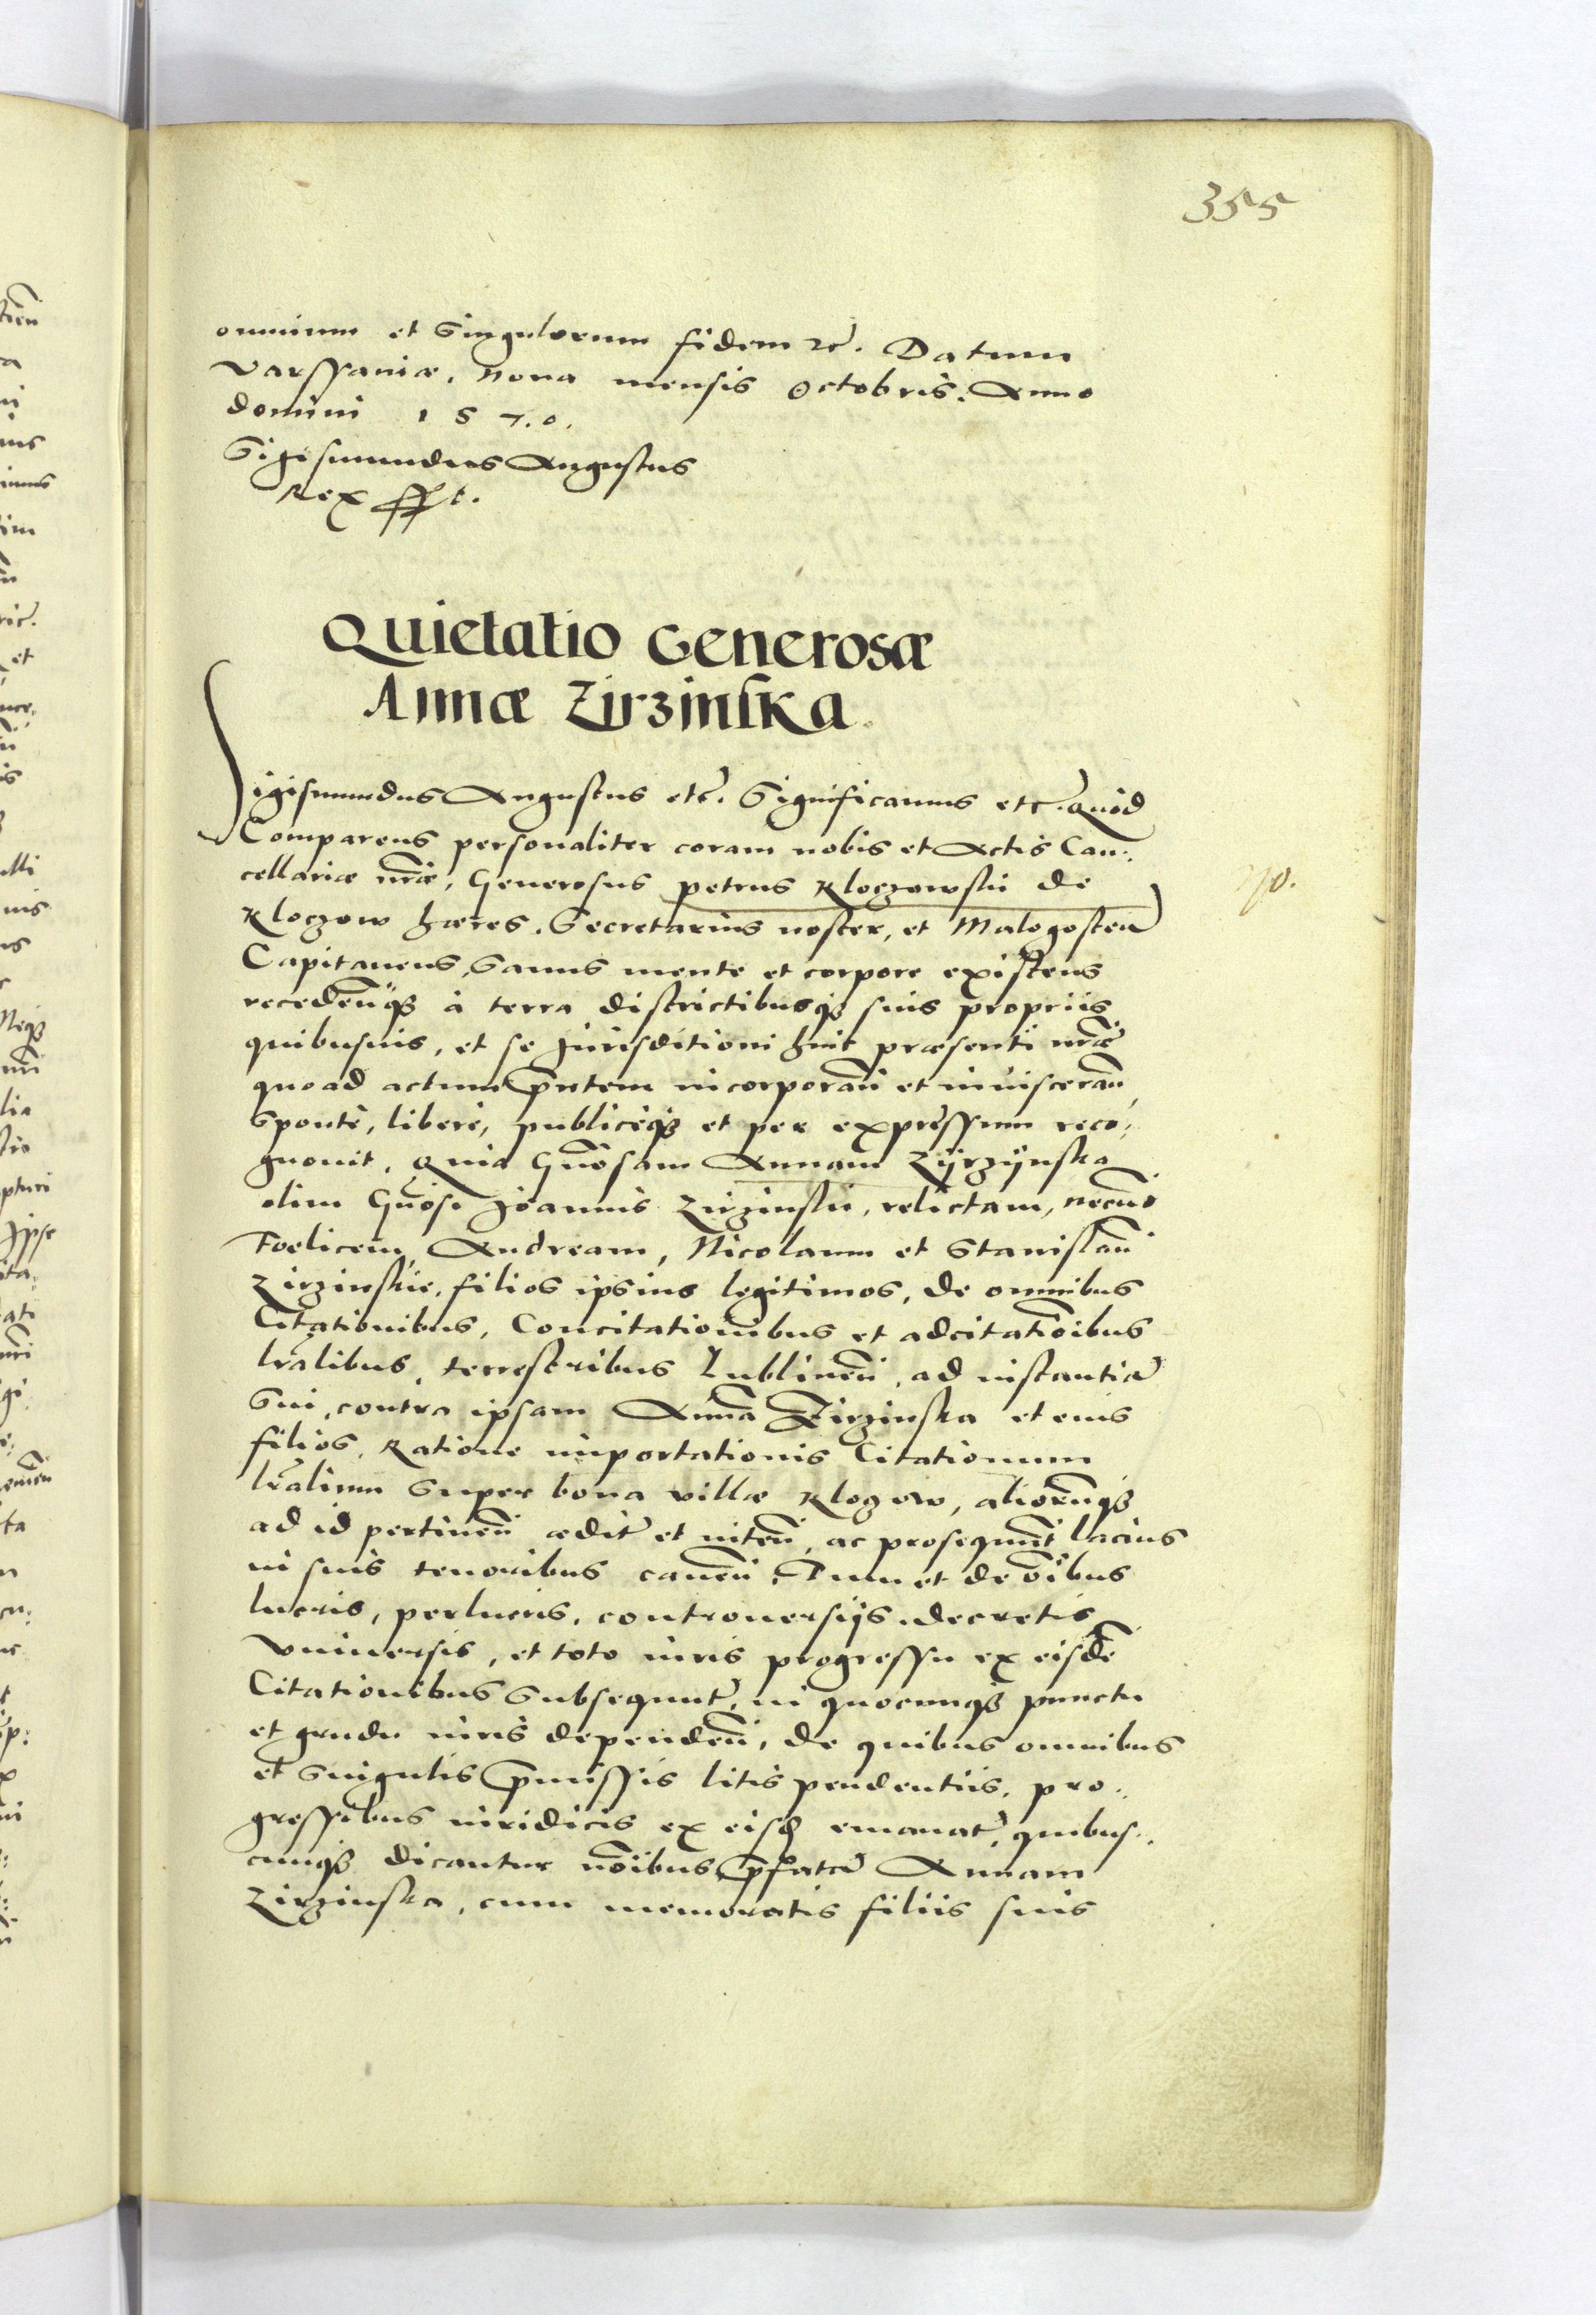 355
omnium et singulorum fidem etc̃. Datum
Varssaviæ, nona mensis Octobris. Anno
domini 1570.
Sigismundus Augustus
Rex sst.
Quietatio Generosæ
Annæ Zirzinska
Sigismundus Augustus etc̃. Significamus etc. Quod
Comparens personaliter coram nobis et Actis Can:
cellariæ nr̃æ, Generosus Petrus Kloczowski de
Kloczow hæres. Secretarius noster, et Malogosteñ
Capitaneus, sanus mente et corpore existens
recedeñq3 à terra districtibusq3 suis propriis
quibusuis, et se Jurisditioni huic præsenti nr̃æ
quoad actum p̃ntem incorporañ et inuiscerañ,
sponte, liberè, publiceq3 et per expressum reco:
gnouit. Quia Gñosam Annam Zÿrzÿnska
olim Gñosi Joannis Zirzinski, relictam, necnõ
Foelicem, Andream, Nicolaum et Stanislaũ
Zirzinskie, filios ipsius legitimos, de omnibus
Citationibus, Concitationibus et adcitatõibus
lr̃alibus, terrestribus Lublineñ, ad instantiã
sui, contra ipsam Annã Zirzinska et eius
filios. Ratione importationis Citationum
lr̃alium super bona villæ Klozow, aliorũq3
ad id pertineñ ædit̃ et inteñ, ac prosequũt̃ lacius
in suis tenoribus caneñ. Tum et de õibus
lucris, perlucris, controuersijs, decretis
vniuersis, et toto iuris progressu ex eisdẽ
Citationibus subsequut̃, in quocunq3 punctu
et gradu iuris dependeñ, de quibus omnibus
et singulis p̃missis litis pendentiis, pro:
gressibus iuridicis ex eisd̃ emanat̃, quibus:
cunq3 dicantur nõibus, p̃fatã Annam
Zirzinska, cum memoratis filiis suis